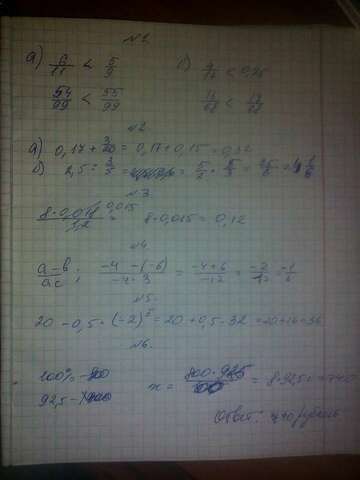 №1
а) 6/11 < 5/9
54/99 < 55/99
№2
а) 0,17 + 3/20 = 0,17 + 0,15 = 0,32
б) 2,5 : 3/5 = 5/2 · 5/3 = 25/6 = 4 1/6
№3
8·0,018 0,015 / 1,2 = 8·0,015 = 0,12
№4
a-b/ac ; -4 -(-6)/-4·3 = -4+6/-12 = -2/12 = -1/6
№5.
20 - 0,5 · (-2)⁵ = 20 + 0,5 · 32 = 20+16=36
№6.
100% - 800
92,5 - x
x = 800·92,5/100 = 8·92,5 = 740
Ответ: 740 рублей